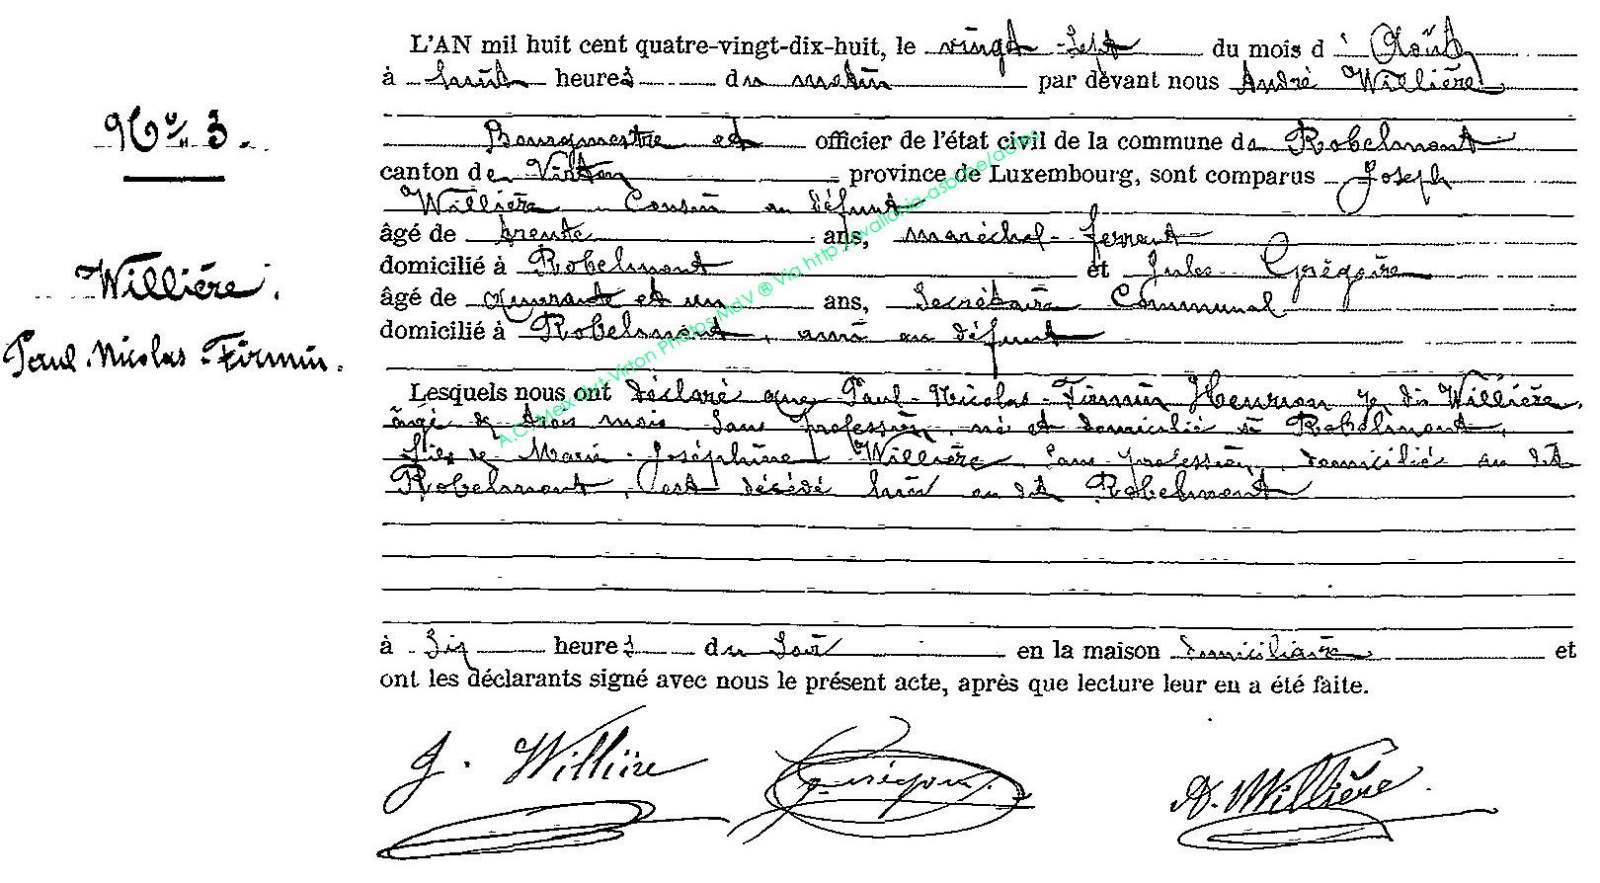 L'AN mil huit cent quatre-vingt-dix-huit, le vingt-sept du mois d'Août
à huit heures du matin par devant nous André Willière
Nº 3.
Bourgmestre et officier de l'état civil de la commune de Robelmont
canton de Virton province de Luxembourg, sont comparus Joseph
Willière Cousin au défunt
âgé de trente ans, maréchal-ferrant
Willière.
domicilié à Robelmont et Jules Grégoire
âgé de quarante et un ans, Secrétaire Communal
domicilié à Robelmont, ami au défunt
Paul-Nicolas-Firmin.
Lesquels nous ont déclaré que Paul-Nicolas-Firmin Henrion dit Willière,
âgé de trois mois sans profession, né et domicilié à Robelmont,
fils de Marie-Joséphine Willière, sans profession, domicilié au dit
Robelmont, est décédé hier au dit Robelmont
à six heures du soir en la maison domiciliaire et
ont les déclarants signé avec nous le présent acte, après que lecture leur en a été faite.
J. Willière Grégoire A. Willière
A.C. Meix dvt Virton Photos MdV ® Via http://wallonia-asbl.be/actes